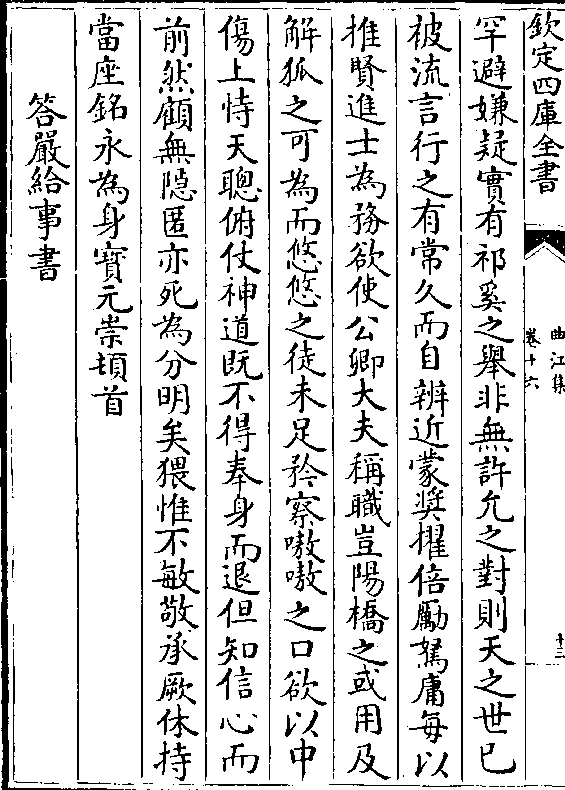 欽定四庫全書
曲江集
卷十六
十三
罕避嫌疑實有祁奚之舉非無許允之對則天之世已
被流言行之有常久而自辨近蒙奬擢倍勵駑庸每以
推賢進士為務欲使公卿大夫稱職豈陽橋之或用及
解狐之可為而悠悠之徒未足矜察嗷嗷之口欲以中
傷上恃天聰俯仗神道既不得奉身而退但知信心而
前然顧無隐匿亦死為分明矣猥惟不敏敬承厥休持
當座銘永為身寳元崇頓首
答嚴給事書